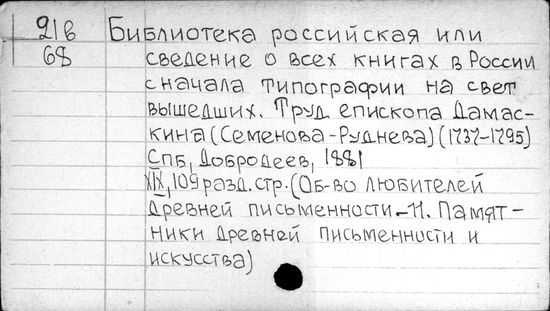 21в Библиотека российская или
68 сведение о всех книгах в России
с начала типографии на свет
вышедших. Труд епископа Дамас-
кина (Семенова-Руднева) (1737-1795)
СПб, Добродеев, 1881
XIX, 109 разд. стр. (Об-во любителей
древней письменности.-11. Памят-
ники древней письменности и
искусства)